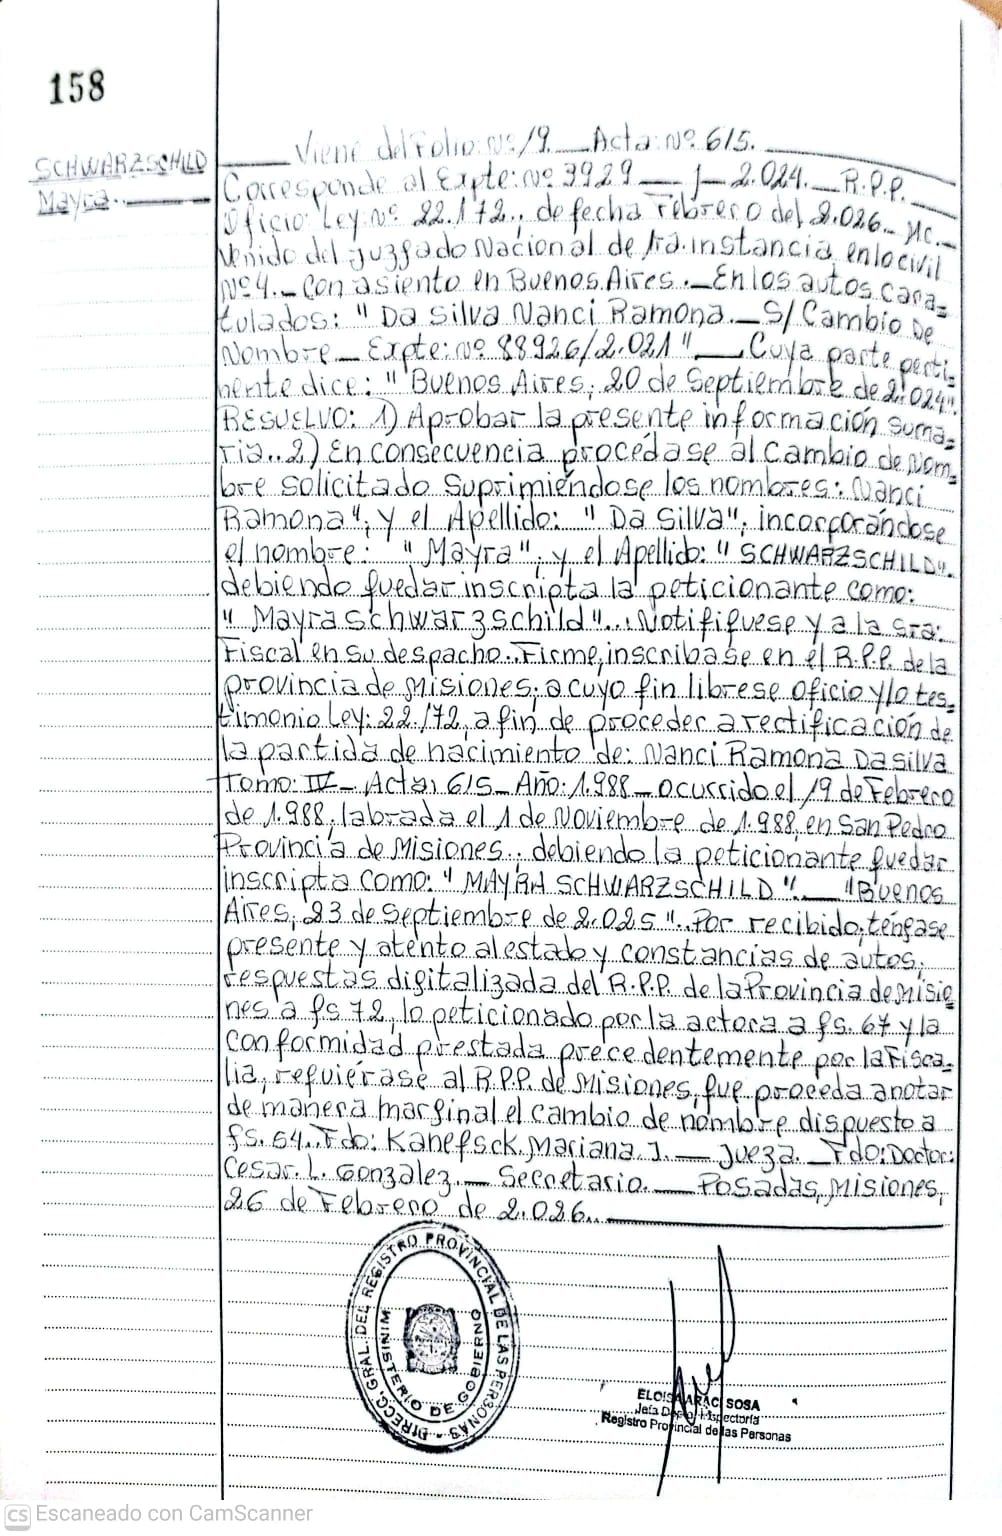 158
SCHWARZSCHILD
Mayra.
Viene del Folio: Nº 19. Acta: Nº 615.
Corresponde al Expte: Nº 3929 — / — 2.024. R.P.P.
Oficio: Ley Nº 22.172., de fecha Febrero del 2.026. Mc.
Venido del Juzgado Nacional de 1ra. instancia en lo civil
Nº 4. Con asiento en Buenos Aires. En los autos cara=
tulados: " Da Silva Nanci Ramona. S/ Cambio De
Nombre Expte: Nº 88926/2.021" Cuya parte perti=
nente dice: " Buenos Aires, 20 de Septiembre de 2.024".
RESUELVO: 1) Aprobar la presente información suma=
ria.. 2) En consecuencia procédase al Cambio de Nom=
bre solicitado suprimiéndose los nombres: Nanci
Ramona", y el Apellido: " Da Silva"; incorporándose
el nombre: " Mayra"; y el Apellido: " SCHWARZSCHILD".
debiendo quedar inscripta la peticionante como:
" Mayra Schwarzschild"... Notifíquese y a la Sra:
Fiscal en su despacho.. Firme, inscríbase en el R.P.P. de la
provincia de Misiones; a cuyo fin líbrese oficio y/o tes=
timonio Ley: 22.172, a fin de proceder a rectificación de
la partida de nacimiento de: Nanci Ramona Da Silva
Tomo: IV — Acta: 615 — Año: 1.988 — ocurrido el 19 de Febrero
de 1.988, labrada el 1 de Noviembre de 1.988, en San Pedro
Provincia de Misiones; debiendo la peticionante quedar
inscripta como: " MAYRA SCHWARZSCHILD". "Buenos
Aires, 23 de Septiembre de 2.025". Por recibido, téngase
presente y atento al estado y constancias de autos;
respuestas digitalizada del R.P.P. de la Provincia de Misio
nes a fs 72, lo peticionado por la actora a fs. 67 y la
Conformidad prestada precedentemente por la Fisca=
lía, requiérase al R.P.P. de Misiones, que proceda anotar
de manera marginal el cambio de nombre dispuesto a
fs. 64.. Fdo: Kanefsck, Mariana J. — Jueza. — Fdo: Doctor:
Cesar. L. Gonzalez. — Secretario. — Posadas, Misiones,
26 de Febrero de 2.026..
DIRECC. GRAL. DEL REGISTRO PROVINCIAL DE LAS PERSONAS
MINISTERIO DE GOBIERNO
ELOISA ARACI SOSA
Jefa Inspectoría
Registro Provincial de las Personas
CS Escaneado con CamScanner